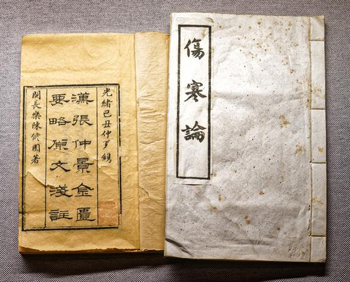 傷寒論
光緒己丑仲
漢張仲景金匱
要略原文淺註
閩長樂陳修園著